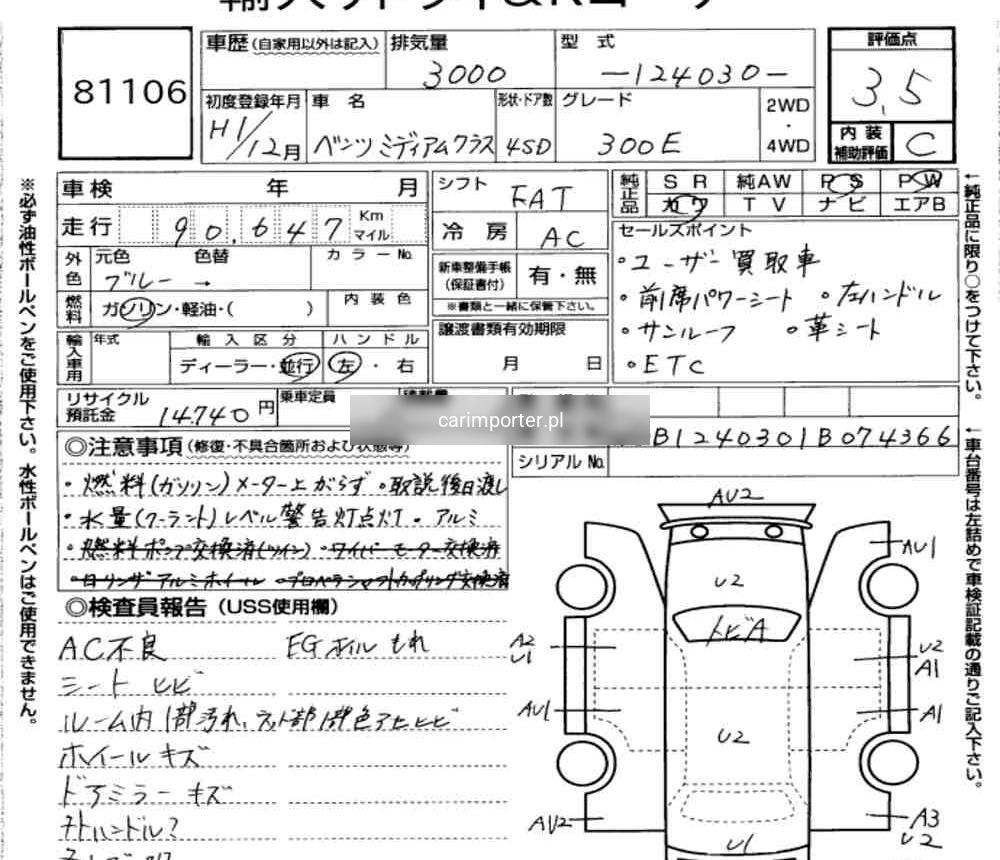 81106
車歴(自家用以外は記入) 排気量 3000 型式 -124030- 評価点 3.5
初度登録年月 H1/12月 車名 ベンツ ミディアムクラス 形状・ドア数 4SD グレード 300E 2WD・4WD 内装補助評価 C
※必ず油性ボールペンをご使用下さい。水性ボールペンはご使用できません。
車検 年 月
走行 90,647 Km マイル
外色 元色 ブルー → 色替 カラーNo.
燃料 ガソリン・軽油・( ) 内装色
輸入車用 年式 輸入区分 ディーラー・並行 ハンドル 左・右
シフト FAT
冷房 AC
新車整備手帳(保証書付) 有・無
※書類と一緒に保管下さい。
譲渡書類有効期限
月 日
純正品 SR 純AW PS PW
カワ TV ナビ エアB
セールスポイント
・ユーザー買取車
・前席パワーシート ・左ハンドル
・サンルーフ ・革シート
・ETC
←純正品に限り○をつけて下さい。
リサイクル預託金 14.740円 乗車定員
carimporter.pl
B1240301B074366
シリアルNo.
←車台番号は左詰めで車検証記載の通りご記入下さい。
◎注意事項(修復・不具合箇所および状態等)
・燃料(ガソリン)メーター上がらず ・取説後日渡し
・水量(クーラント)レベル警告灯点灯・アルミ
・燃料ポンプ交換済(ツイン)・ワイパーモーター交換済
・ロリンザアルミホイール ・プロペラシャフトカップリング交換済
◎検査員報告(USS使用欄)
AC不良 EGオイルもれ
シートヒビ
ホイールキズ
ドアミラーキズ
AU2
AU1
U2
トビA
A2
U1
U2
A1
AU1
A1
U2
AU2
A3
U2
U1